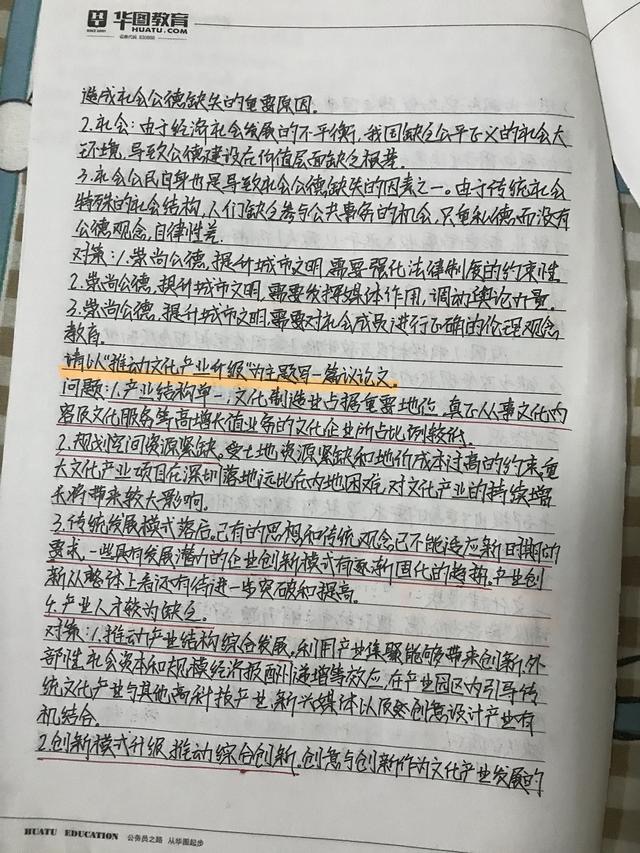 华图教育
HUATU.COM
造成社会公德缺失的重要原因。
2.社会:由于经济社会发展的不平衡,我国缺乏公平正义的社会大
环境,导致公德建设在价值层面缺乏根基。
3.社会公民自身也是导致社会公德缺失的因素之一。由于传统社会
特殊的社会结构,人们缺乏参与公共事务的机会,只重私德而没有
公德观念,自律性差.
对策:1.崇尚公德,提升城市文明,需要强化法律制度的约束性
2.崇尚公德,提升城市文明,需要发挥媒体作用,调动舆论力量.
3.崇尚公德,提升城市文明,需要对社会成员进行正确的伦理观念
教育.
请以"推动文化产业升级"为主题写一篇议论文。
问题:1.产业结构单一,文化制造业占据重要地位,真正从事文化内
容及文化服务等高增长值业务的文化企业所占比例较低.
2.规划空间资源紧缺。受土地资源紧缺和地价成本过高的约束,重
大文化产业项目在深圳落地远比在内地困难,对文化产业的持续增
长将带来较大影响。
3.传统发展模式落后。已有的思想和传统观念已不能适应新时期的
要求,一些具有发展潜力的企业创新模式有逐渐固化的趋势,产业创
新从整体上看还有待进一步突破和提高。
4.产业人才较为缺乏.
对策:1.推动产业结构综合发展,利用产业集聚能够带来创新、外
部性、社会资本和规模经济报酬递增等效应,在产业园区内引导传
统文化产业与其他高科技产业、新兴媒体以及创意设计产业有
机结合。
2.创新模式升级,推动综合创新。创意与创新作为文化产业发展的
HUATU EDUCATION 公务员之路 从华图起步